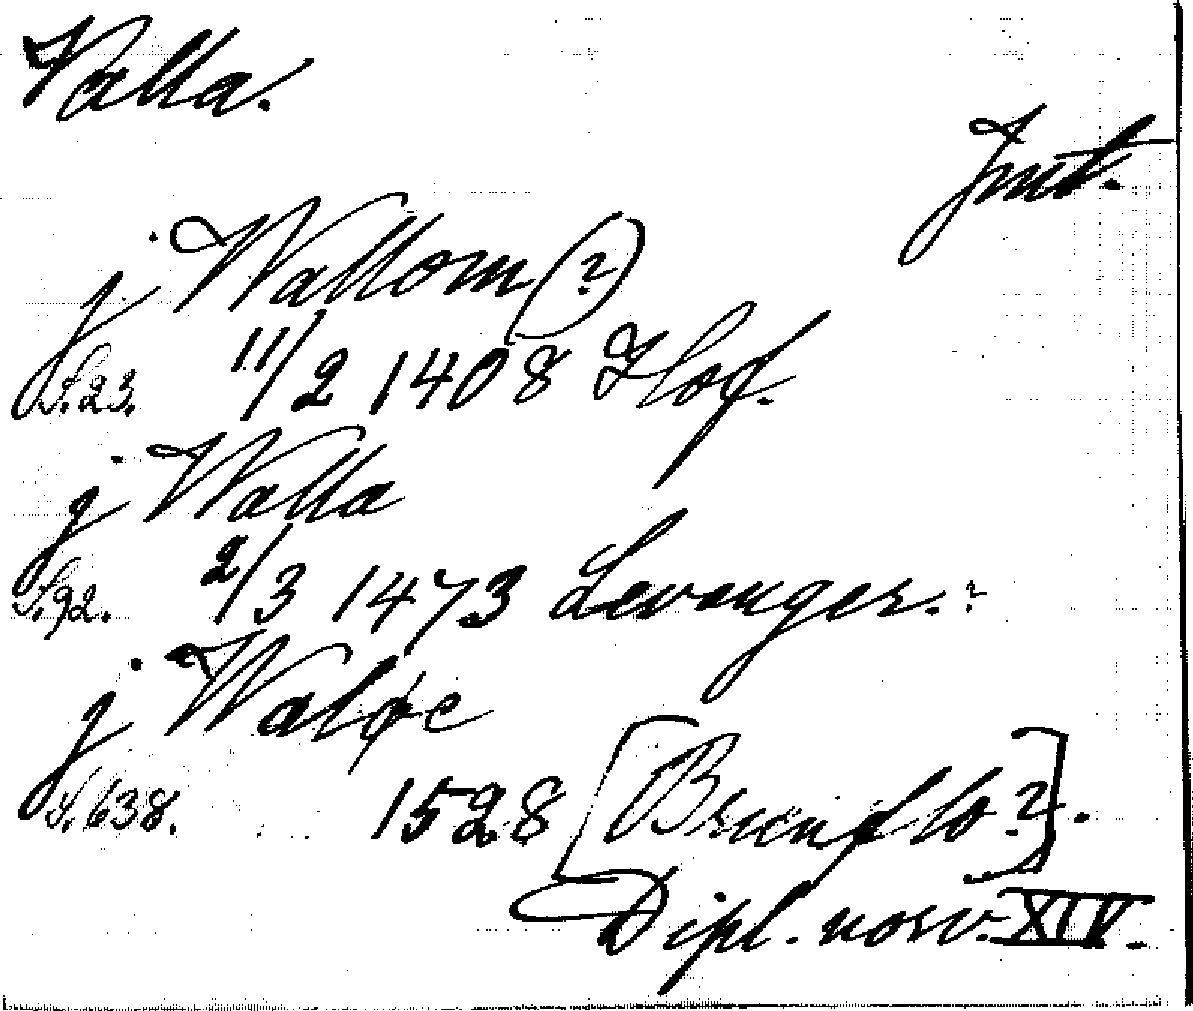 Valla.
Jmt.
j Wallom (?)
S. 23. 11/2 1408 Hof.
j Walla
S. 92. 2/3 1473 Levanger. ?
j Waløe
S. 638. 1528 [Brunflo?].
Dipl. norv. XIV.